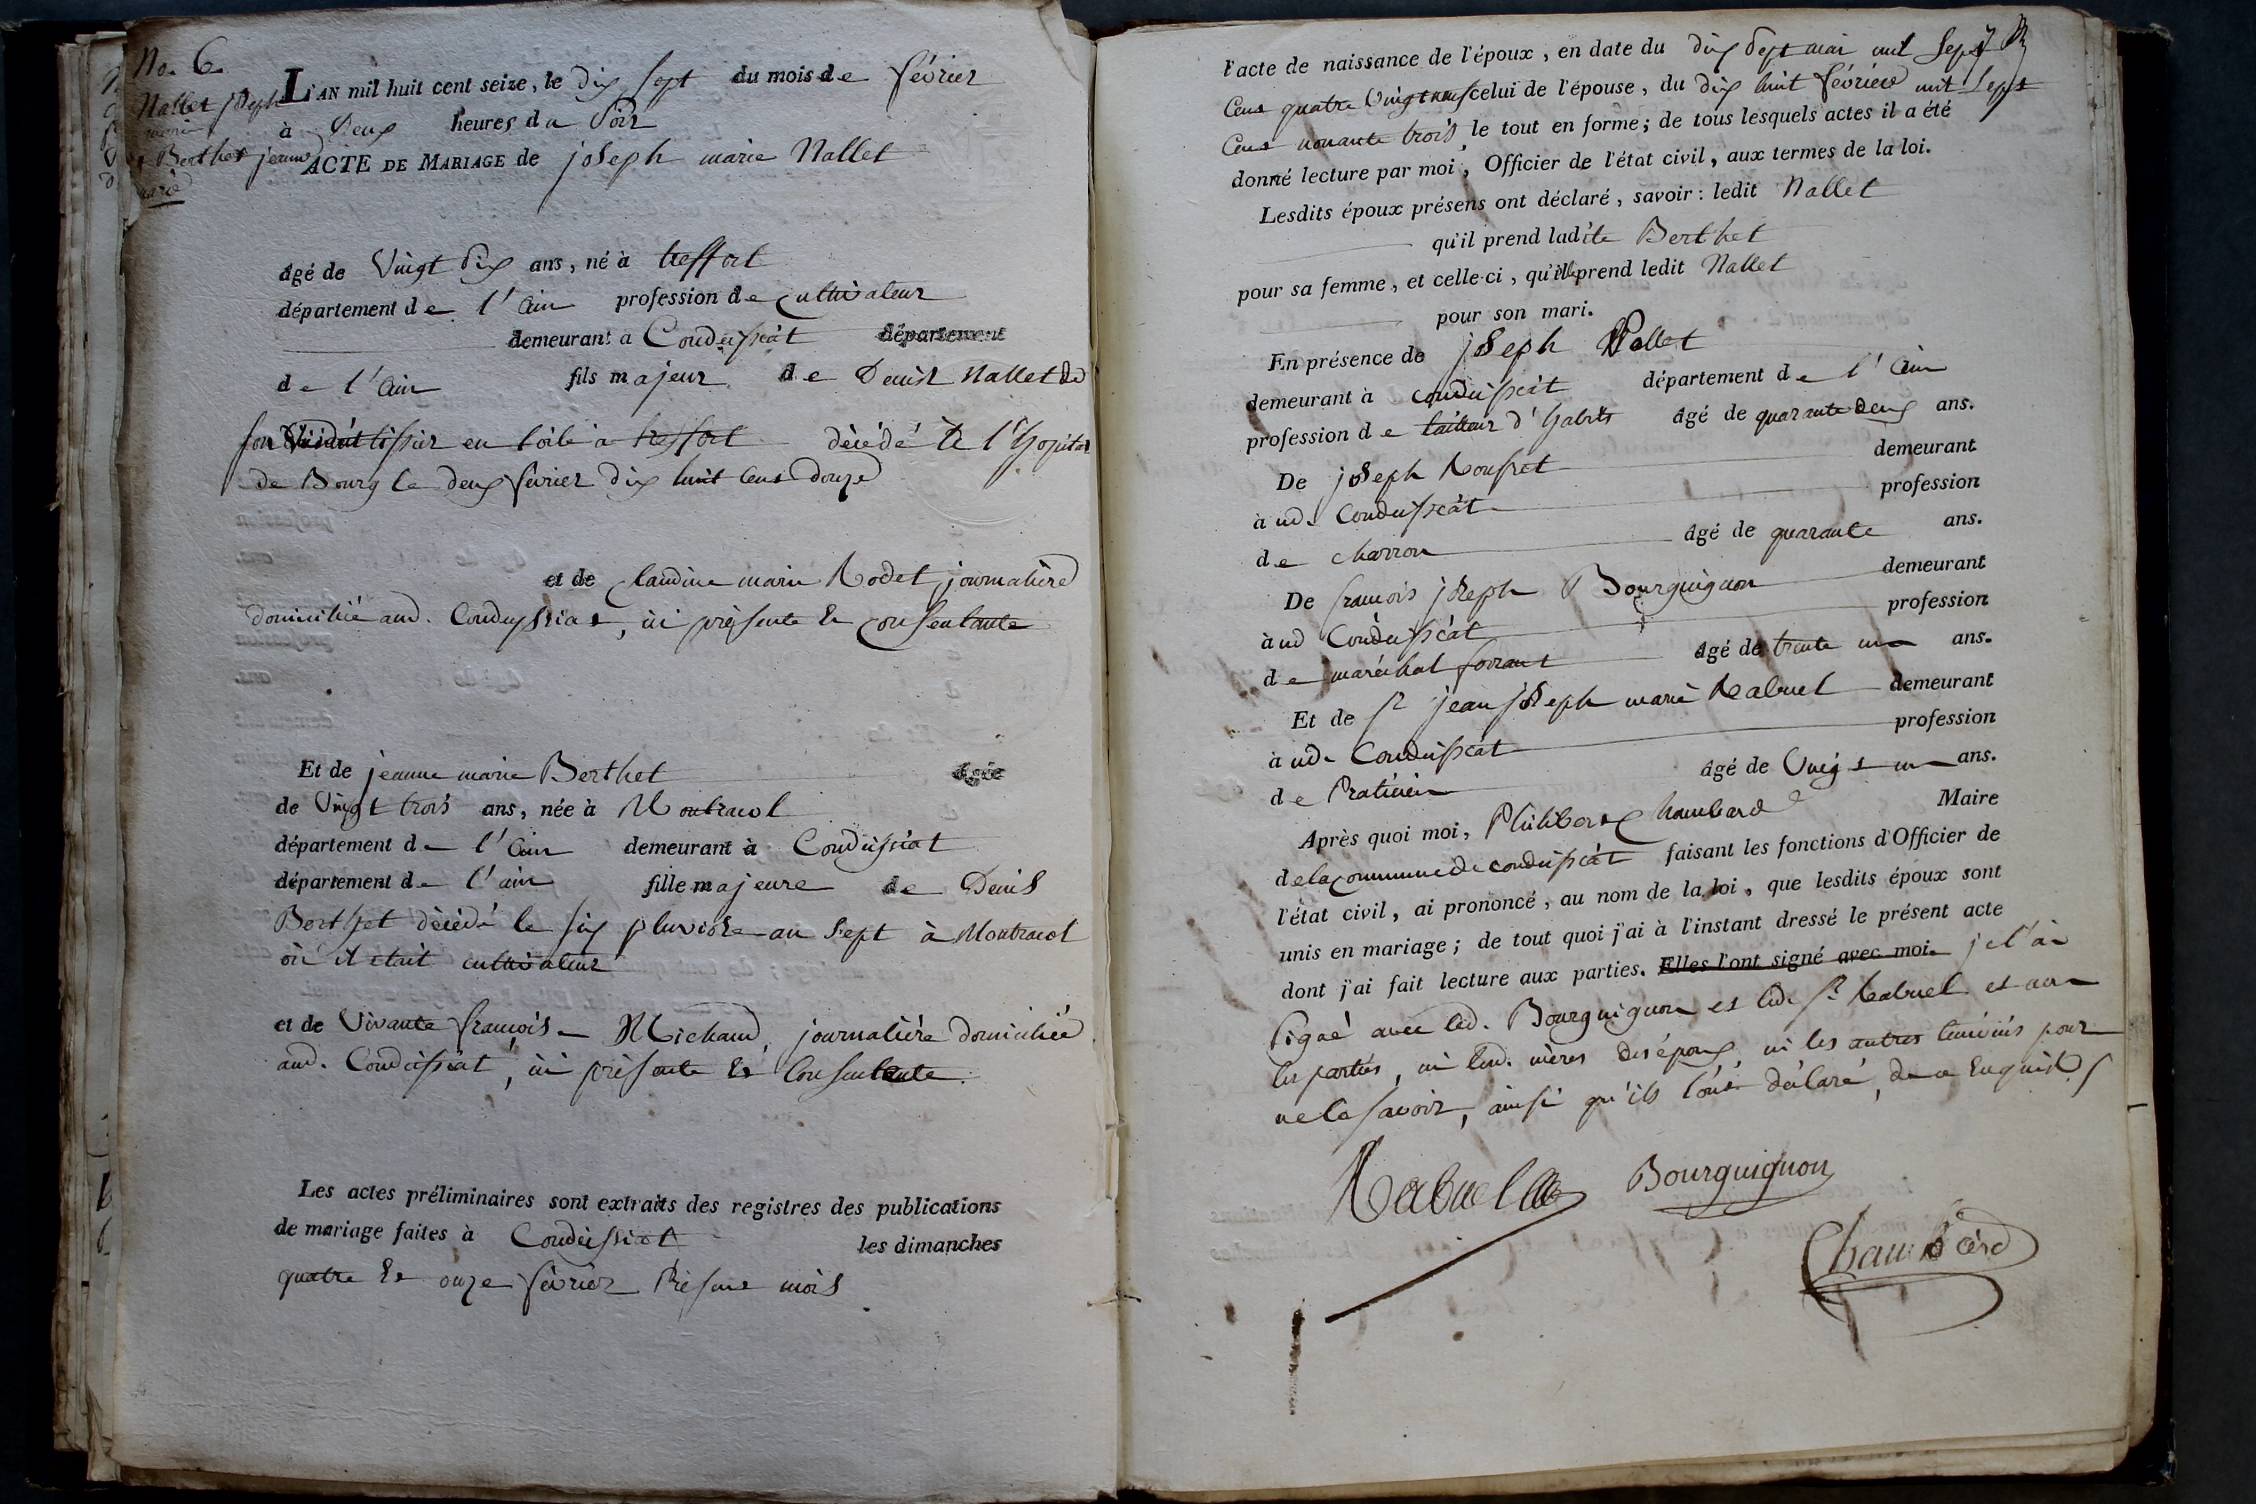 No. 6.
Nallet joseph
marie
& Berthet jeanne
marie
L'AN mil huit cent seize, le dix sept du mois de février
à Deux heures du Soir
ACTE DE MARIAGE de joseph marie Nallet
âgé de Vingt Six ans, né à treffort
département de l'ain profession de cultivateur
demeurant a Condeissiat département
de l'ain fils majeur de Denis Nallet de
son tissier en toile à treffort décédé à l'hopital
de Bourg le deux février dix huit cent douze
et de Claudine marie Rodet journalière
domiciliée aud. Condeyssiat, ici présente & consentante
Et de jeanne marie Berthet âgée
de Vingt trois ans, née à Montracol
département de l'ain demeurant à Condeissiat
département de l'ain fille majeure de Denis
Berthet décédé le six pluviose an sept à Montracol
où il était cultivateur
et de Vivante françoise Michaud, journalière domiciliée
aud. Condeissiat, ici présente & Consentante.
Les actes préliminaires sont extraits des registres des publications
de mariage faites à Condeissiat les dimanches
quatre & onze février Présent mois
l'acte de naissance de l'époux, en date du dix Sept mai mil Sept
Cent quatre Vingt neuf celui de l'épouse, du dix huit février mil Sept
Cent nonante trois, le tout en forme; de tous lesquels actes il a été
donné lecture par moi, Officier de l'état civil, aux termes de la loi.
Lesdits époux présens ont déclaré, savoir: ledit Nallet
qu'il prend ladite Berthet
pour sa femme, et celle-ci, qu'elle prend ledit Nallet
pour son mari.
En présence de joseph Nallet
demeurant à condeissiat département de l'ain
profession de tailleur d'habits âgé de quarante deux ans.
De joseph Rousset demeurant
à ud. Condeissiat profession
de charron âgé de quarante ans.
De françois joseph Bourguignon demeurant
à ud Condeissiat profession
de maréchal ferrant âgé de trente un ans.
Et de Sr jean joseph marie Rabuel demeurant
à ud. Condeissiat profession
de Praticien âgé de Vingt un ans.
Après quoi moi, Philibert Chambard Maire
de la commune de condeissiat faisant les fonctions d'Officier de
l'état civil, ai prononcé, au nom de la loi, que lesdits époux sont
unis en mariage; de tout quoi j'ai à l'instant dressé le présent acte
dont j'ai fait lecture aux parties. Elles l'ont signé avec moi. je l'ai
signé avec led. Bourguignon et led. Sr Rabuel et non
les parties, ni lesd. mères des époux, ni les autres témoins pour
ne le savoir, ainsi qu'ils l'ont déclaré, de ce Enquis
Rabuel
Bourguignon
Chambard